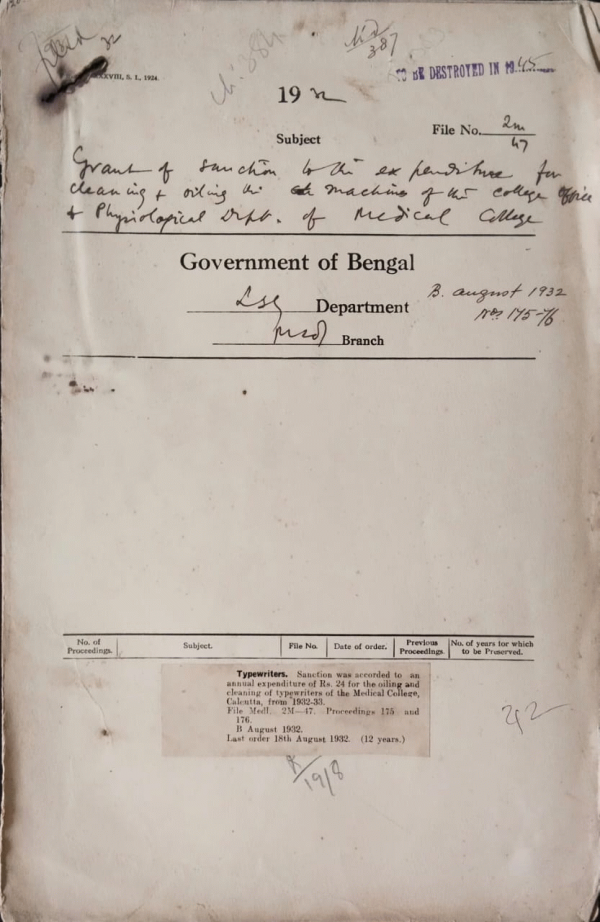 XXVIII, S. I., 1924.
387
TO BE DESTROYED IN 1945
19 32
File No. 2m/47
Subject
Grant of sanction to the expenditure for
cleaning & oiling the machine of the college office
& Physiological Dept. of Medical College
Government of Bengal
LSG Department
B. August 1932
Nos 175-76
Medl Branch
No. of Proceedings. Subject. File No. Date of order. Previous Proceedings. No. of years for which to be Preserved.
Typewriters. Sanction was accorded to an
annual expenditure of Rs. 24 for the oiling and
cleaning of typewriters of the Medical College,
Calcutta, from 1932-33.
File Medl. 2M—47. Proceedings 175 and
176.
B August 1932.
Last order 18th August 1932. (12 years.)
19/8